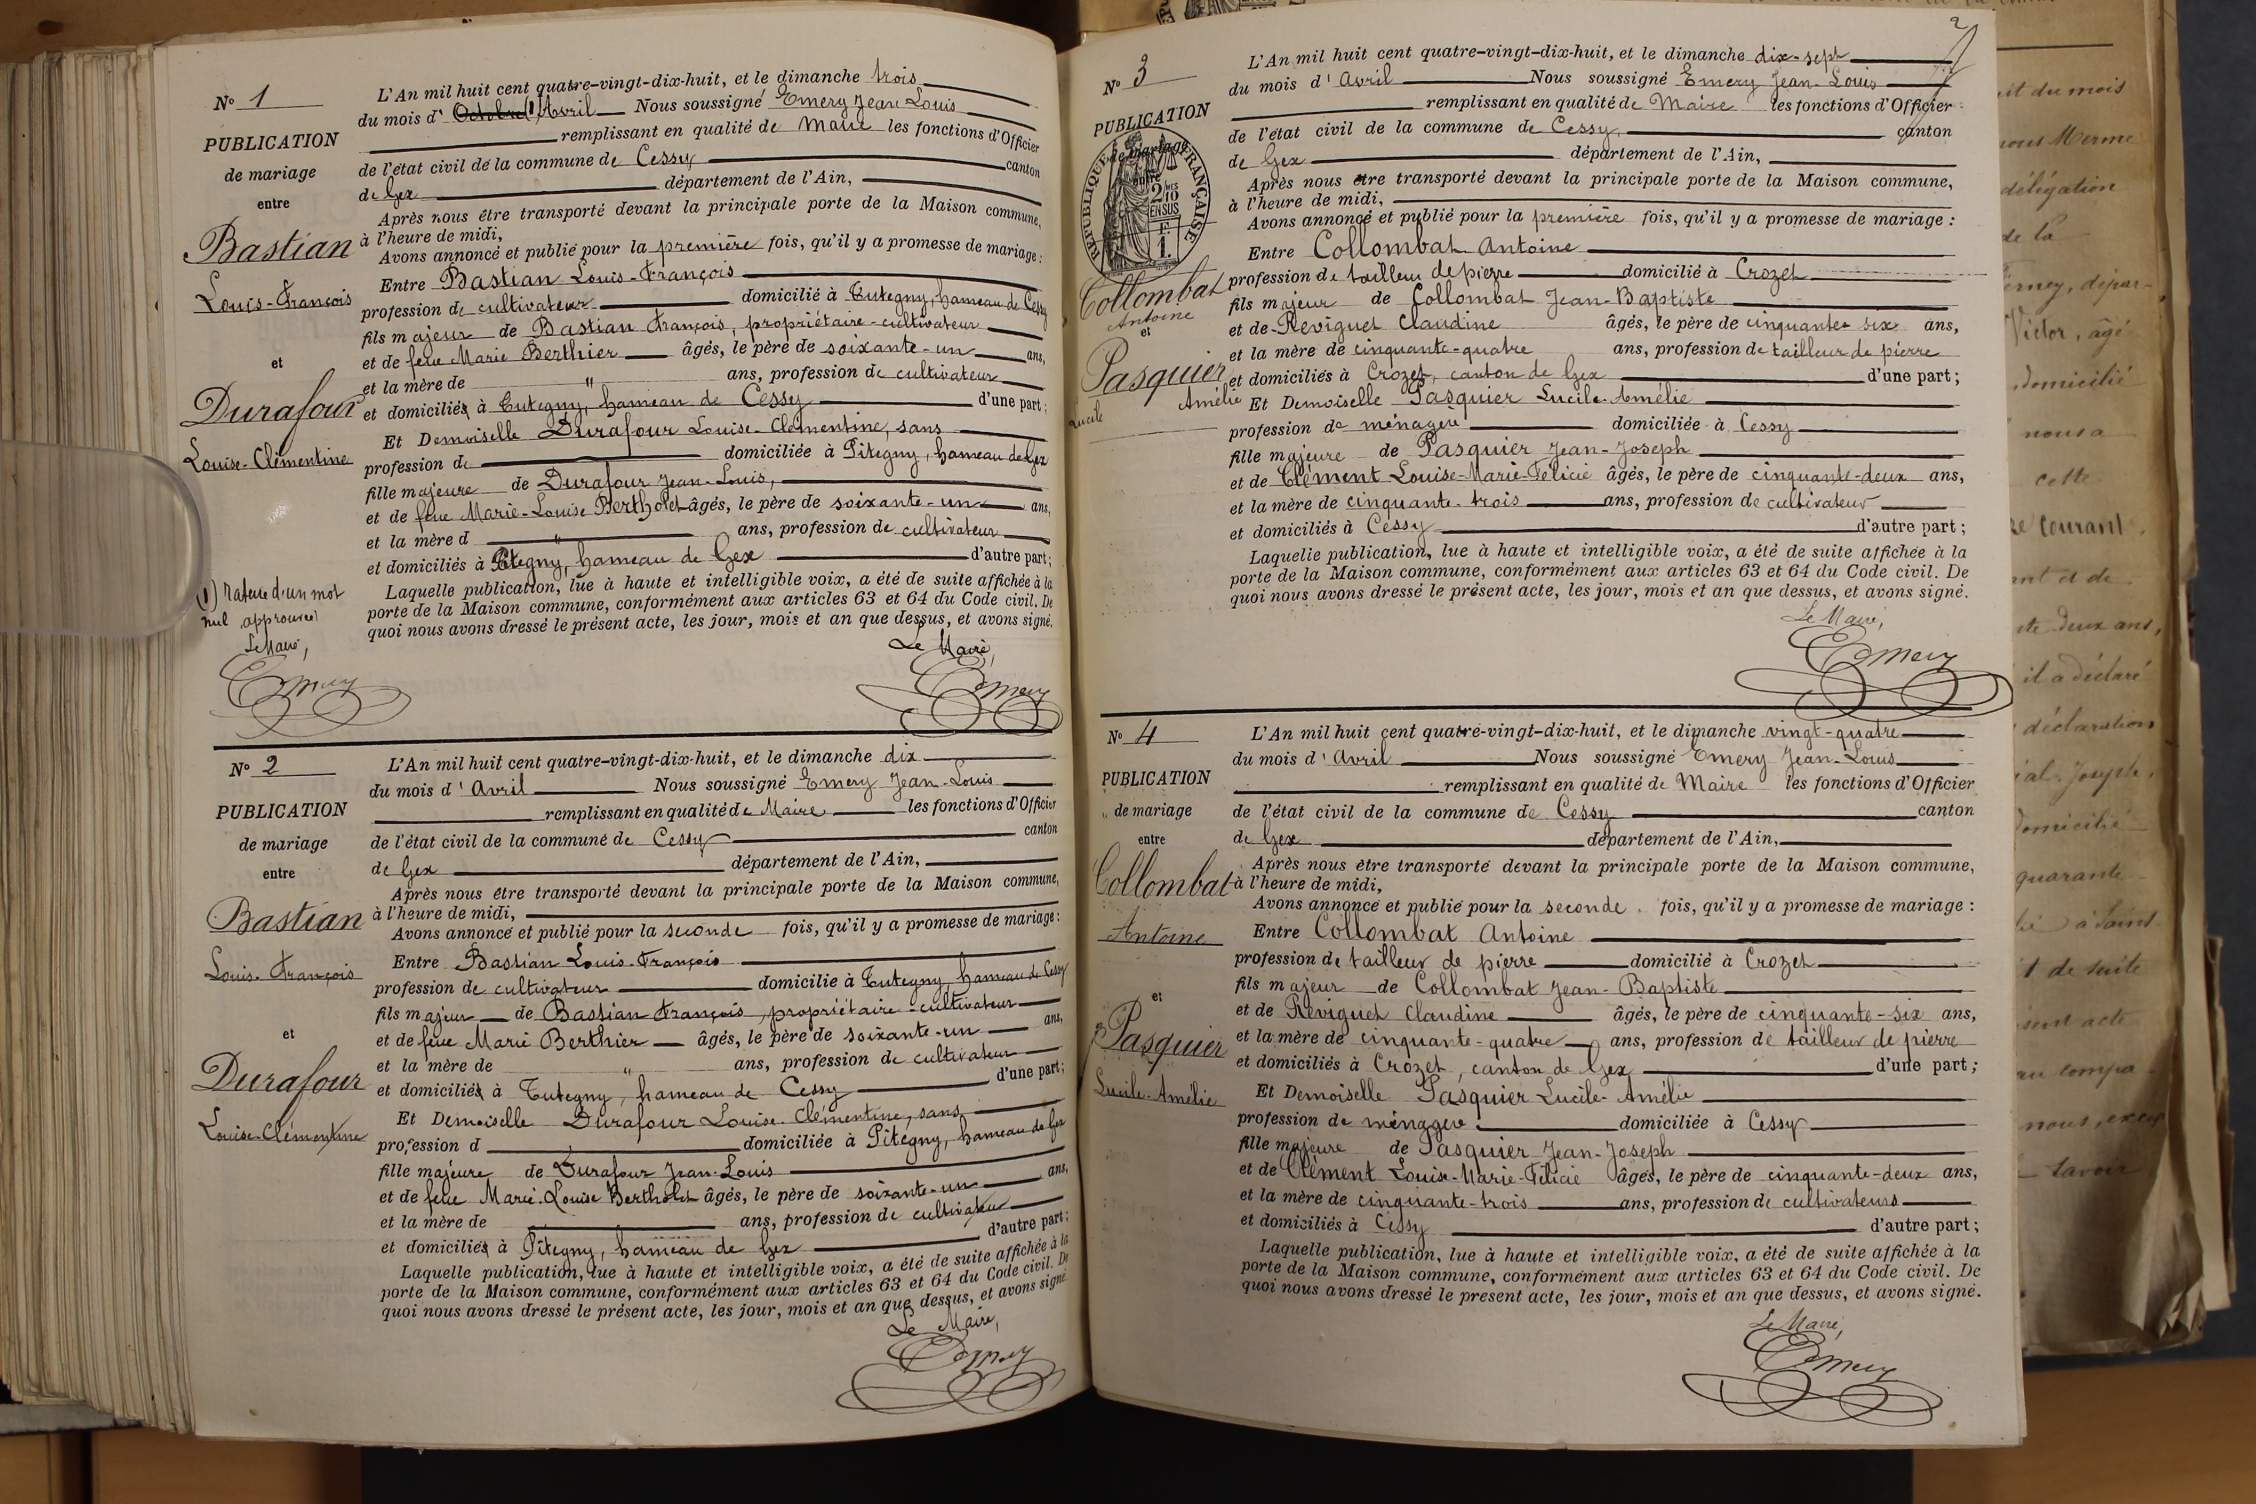 Nº 1
PUBLICATION
de mariage
entre
Bastian
Louis-François
et
Durafour
Louise-Clémentine
(1) rature d'un mot
nul approuvé
Le Maire,
Emery
L'An mil huit cent quatre-vingt-dix-huit, et le dimanche trois
du mois d' Octobre (1) Avril Nous soussigné Emery Jean Louis
remplissant en qualité de Maire les fonctions d'Officier
de l'état civil de la commune de Cessy canton
de Gex département de l'Ain,
Après nous être transporté devant la principale porte de la Maison commune,
à l'heure de midi,
Avons annoncé et publié pour la première fois, qu'il y a promesse de mariage :
Entre Bastian Louis-François
profession de cultivateur domicilié à Tutegny, hameau de Cessy
fils majeur de Bastian François, propriétaire-cultivateur
et de feue Marie Berthier âgés, le père de soixante-un ans,
et la mère de " ans, profession de cultivateur
et domiciliés à Tutegny, hameau de Cessy d'une part ;
Et Demoiselle Durafour Louise-Clémentine, sans
profession de domiciliée à Pitegny, hameau de Gex
fille majeure de Durafour Jean-Louis,
et de feue Marie-Louise Bertholet âgés, le père de soixante-un ans,
et la mère d " ans, profession de cultivateur
et domiciliés à Pitegny, hameau de Gex d'autre part ;
Laquelle publication, lue à haute et intelligible voix, a été de suite affichée à la
porte de la Maison commune, conformément aux articles 63 et 64 du Code civil. De
quoi nous avons dressé le présent acte, les jour, mois et an que dessus, et avons signé.
Le Maire,
Emery
Nº 2
PUBLICATION
de mariage
entre
Bastian
Louis-François
et
Durafour
Louise-Clémentine
L'An mil huit cent quatre-vingt-dix-huit, et le dimanche dix
du mois d' Avril Nous soussigné Emery Jean-Louis
remplissant en qualité de Maire les fonctions d'Officier
de l'état civil de la commune de Cessy canton
de Gex département de l'Ain,
Après nous être transporté devant la principale porte de la Maison commune,
à l'heure de midi,
Avons annoncé et publié pour la seconde fois, qu'il y a promesse de mariage :
Entre Bastian Louis-François
profession de cultivateur domicilié à Tutegny, hameau de Cessy
fils majeur de Bastian François, propriétaire-cultivateur
et de feue Marie Berthier âgés, le père de soixante-un ans,
et la mère de " ans, profession de cultivateur
et domiciliés à Tutegny, hameau de Cessy d'une part ;
Et Demoiselle Durafour Louise-Clémentine, sans
profession d domiciliée à Pitegny, hameau de Gex
fille majeure de Durafour Jean-Louis
et de feue Marie-Louise Bertholet âgés, le père de soixante-un ans,
et la mère de ans, profession de cultivateur
et domiciliés à Pitegny, hameau de Gex d'autre part ;
Laquelle publication, lue à haute et intelligible voix, a été de suite affichée à la
porte de la Maison commune, conformément aux articles 63 et 64 du Code civil. De
quoi nous avons dressé le présent acte, les jour, mois et an que dessus, et avons signé
Le Maire,
Emery
2
Nº 3
PUBLICATION
de mariage
entre
RÉPUBLIQUE FRANÇAISE
2/10 EN SUS
F. 1.
Collombat
Antoine
et
Pasquier
Lucile Amélie
L'An mil huit cent quatre-vingt-dix-huit, et le dimanche dix-sept
du mois d' Avril Nous soussigné Emery Jean-Louis
remplissant en qualité de Maire les fonctions d'Officier
de l'état civil de la commune de Cessy, canton
de Gex département de l'Ain,
Après nous être transporté devant la principale porte de la Maison commune,
à l'heure de midi,
Avons annoncé et publié pour la première fois, qu'il y a promesse de mariage :
Entre Collombat Antoine
profession de tailleur de pierre domicilié à Crozet
fils majeur de Collombat Jean-Baptiste
et de Reviguet Claudine âgés, le père de cinquante six ans,
et la mère de cinquante-quatre ans, profession de tailleur de pierre
et domiciliés à Crozet, canton de Gex d'une part ;
Et Demoiselle Pasquier Lucile-Amélie
profession de ménagère domiciliée à Cessy
fille majeure de Pasquier Jean-Joseph
et de Clément Louise-Marie-Félicie âgés, le père de cinquante-deux ans,
et la mère de cinquante-trois ans, profession de cultivateur
et domiciliés à Cessy d'autre part ;
Laquelle publication, lue à haute et intelligible voix, a été de suite affichée à la
porte de la Maison commune, conformément aux articles 63 et 64 du Code civil. De
quoi nous avons dressé le présent acte, les jour, mois et an que dessus, et avons signé.
Le Maire,
Emery
Nº 4
PUBLICATION
de mariage
entre
Collombat
Antoine
et
Pasquier
Lucile-Amélie
L'An mil huit cent quatre-vingt-dix-huit, et le dimanche vingt-quatre
du mois d' Avril Nous soussigné Emery Jean-Louis
remplissant en qualité de Maire les fonctions d'Officier
de l'état civil de la commune de Cessy canton
de Gex département de l'Ain,
Après nous être transporté devant la principale porte de la Maison commune,
à l'heure de midi,
Avons annoncé et publié pour la seconde fois, qu'il y a promesse de mariage :
Entre Collombat Antoine
profession de tailleur de pierre domicilié à Crozet
fils majeur de Collombat Jean-Baptiste
et de Reviguet Claudine âgés, le père de cinquante-six ans,
et la mère de cinquante-quatre ans, profession de tailleur de pierre
et domiciliés à Crozet, canton de Gex d'une part ;
Et Demoiselle Pasquier Lucile-Amélie
profession de ménagère domiciliée à Cessy
fille majeure de Pasquier Jean-Joseph
et de Clément Louise-Marie-Félicie âgés, le père de cinquante-deux ans,
et la mère de cinquante-trois ans, profession de cultivateurs
et domiciliés à Cessy d'autre part ;
Laquelle publication, lue à haute et intelligible voix, a été de suite affichée à la
porte de la Maison commune, conformément aux articles 63 et 64 du Code civil. De
quoi nous avons dressé le présent acte, les jour, mois et an que dessus, et avons signé.
Le Maire,
Emery
du mois
délégation
de la
Victor, âgé
domicilié
nous a
cette
courant
et de
deux ans,
il a déclaré
déclaration
Joseph,
domicilié
quarante
à Saint
de suite
acte
nous,
savoir